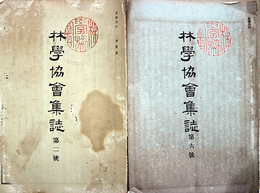 林學協會集誌
第二號
林學協會集誌
第六號